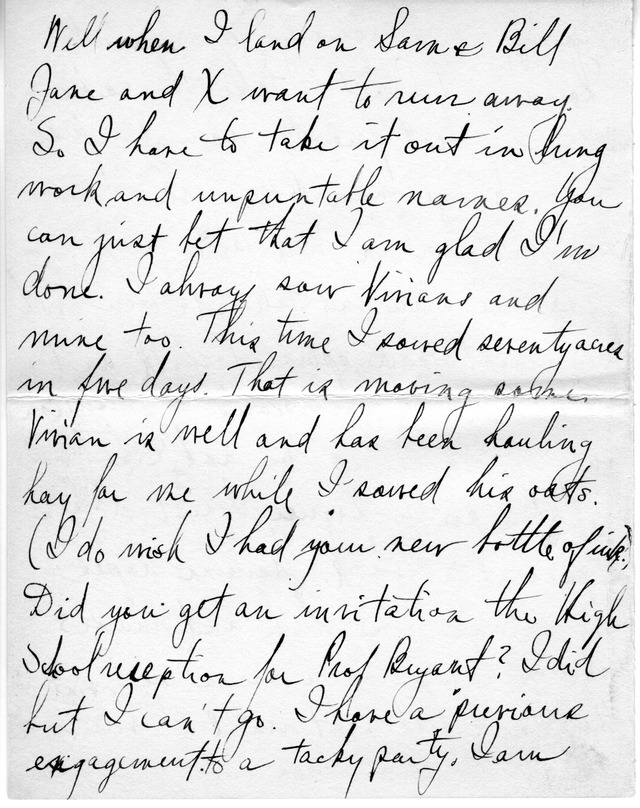 Well when I land on Sam & Bill
Jane and X want to run away.
So I have to take it out in lung
work and unprintable names. You
can just bet that I am glad I'm
done. I always sow Vivians and
mine too. This time I sowed seventy acres
in five days. That is moving some.
Vivian is well and has been hauling
hay for me while I sowed his oats.
(I do wish I had your new bottle of ink.)
Did you get an invitation the High
School reception for Prof Bryant? I did
but I can't go. I have a "previous
engagement" to a tacky party. I am